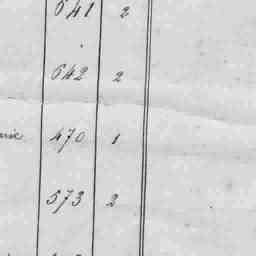 641 2
642 2
470 1
573 2